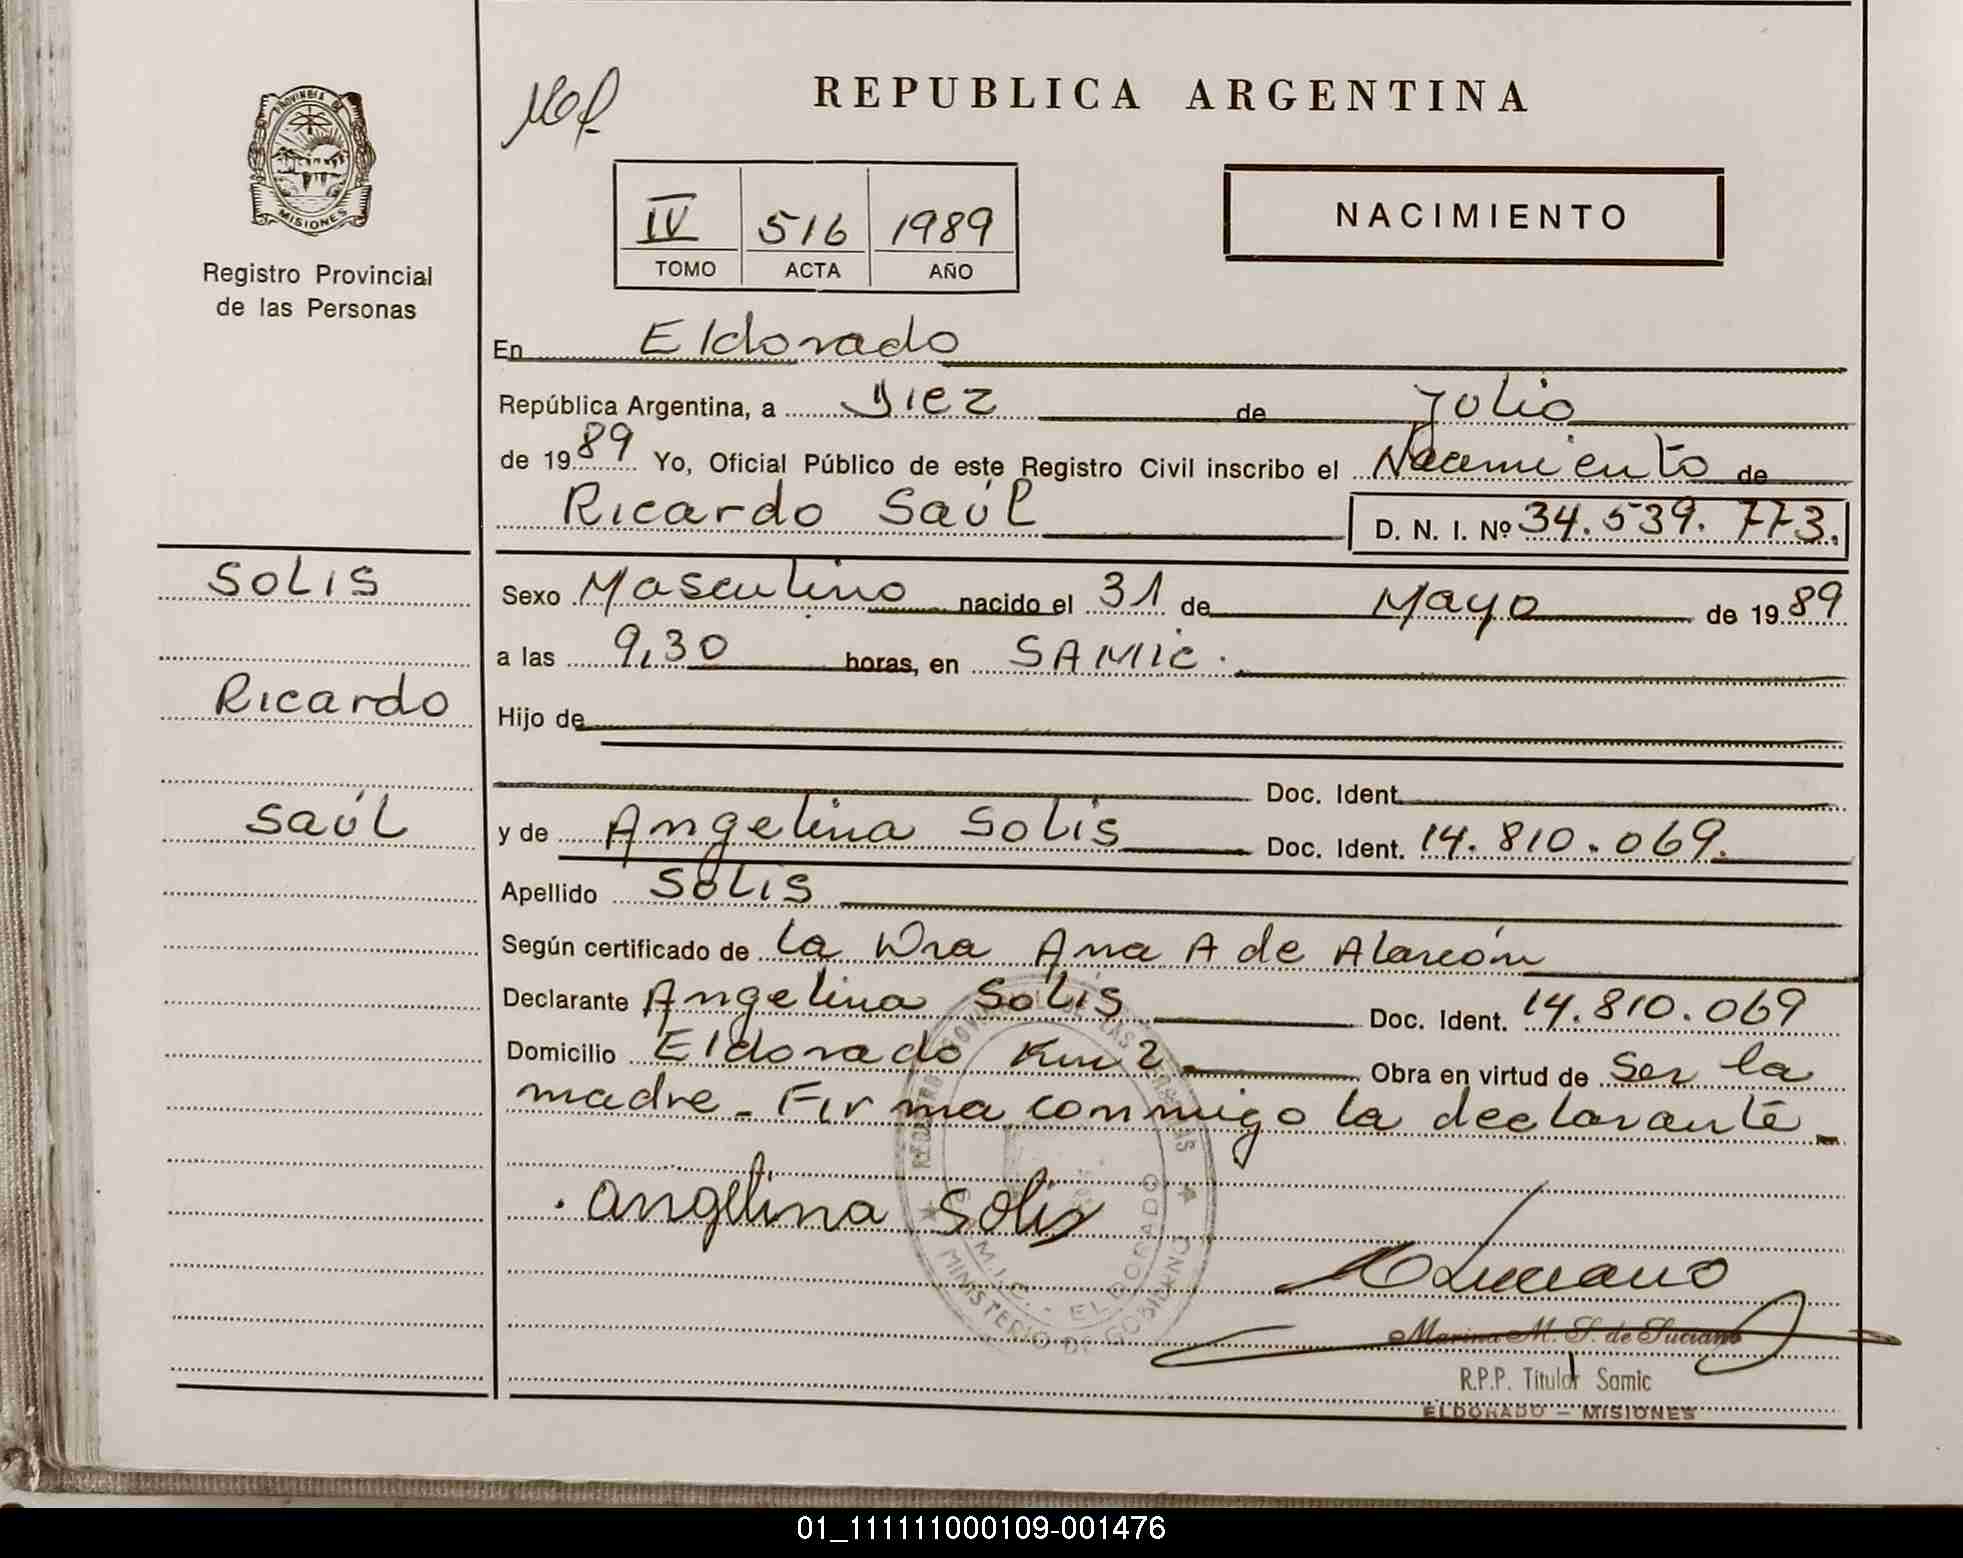 REPUBLICA ARGENTINA
PROVINCIA DE
MISIONES
Registro Provincial
de las Personas
IV 516 1989
TOMO ACTA AÑO
NACIMIENTO
En Eldorado
República Argentina, a Diez de Julio
de 1989 Yo, Oficial Público de este Registro Civil inscribo el Nacimiento de
Ricardo Saúl D. N. I. Nº 34.539.773.
SOLIS
Ricardo
Saúl
Sexo Masculino nacido el 31 de Mayo de 1989
a las 9,30 horas, en SAMIC.
Hijo de
Doc. Ident.
y de Angelina Solis Doc. Ident. 14.810.069.
Apellido Solis
Según certificado de la Dra Ana A de Alarcón
Declarante Angelina Solis Doc. Ident. 14.810.069
Domicilio Eldorado Km 2 Obra en virtud de Ser la
madre - Firma conmigo la declarante
Angelina Solis
REGISTRO PROVINCIAL DE LAS PERSONAS
MINISTERIO DE GOBIERNO
M.I.C. - ELDORADO
Marina M. S. de Luciano
R.P.P. Titular Samic
ELDORADO - MISIONES
01_111111000109-001476